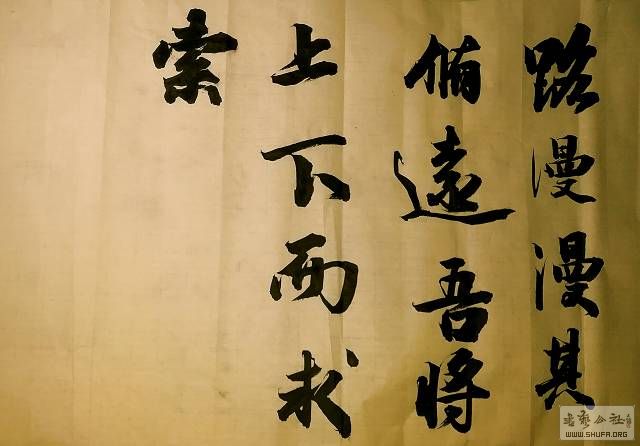 路漫漫其
脩遠吾將
上下而求
索
WWW.SHUFA.ORG